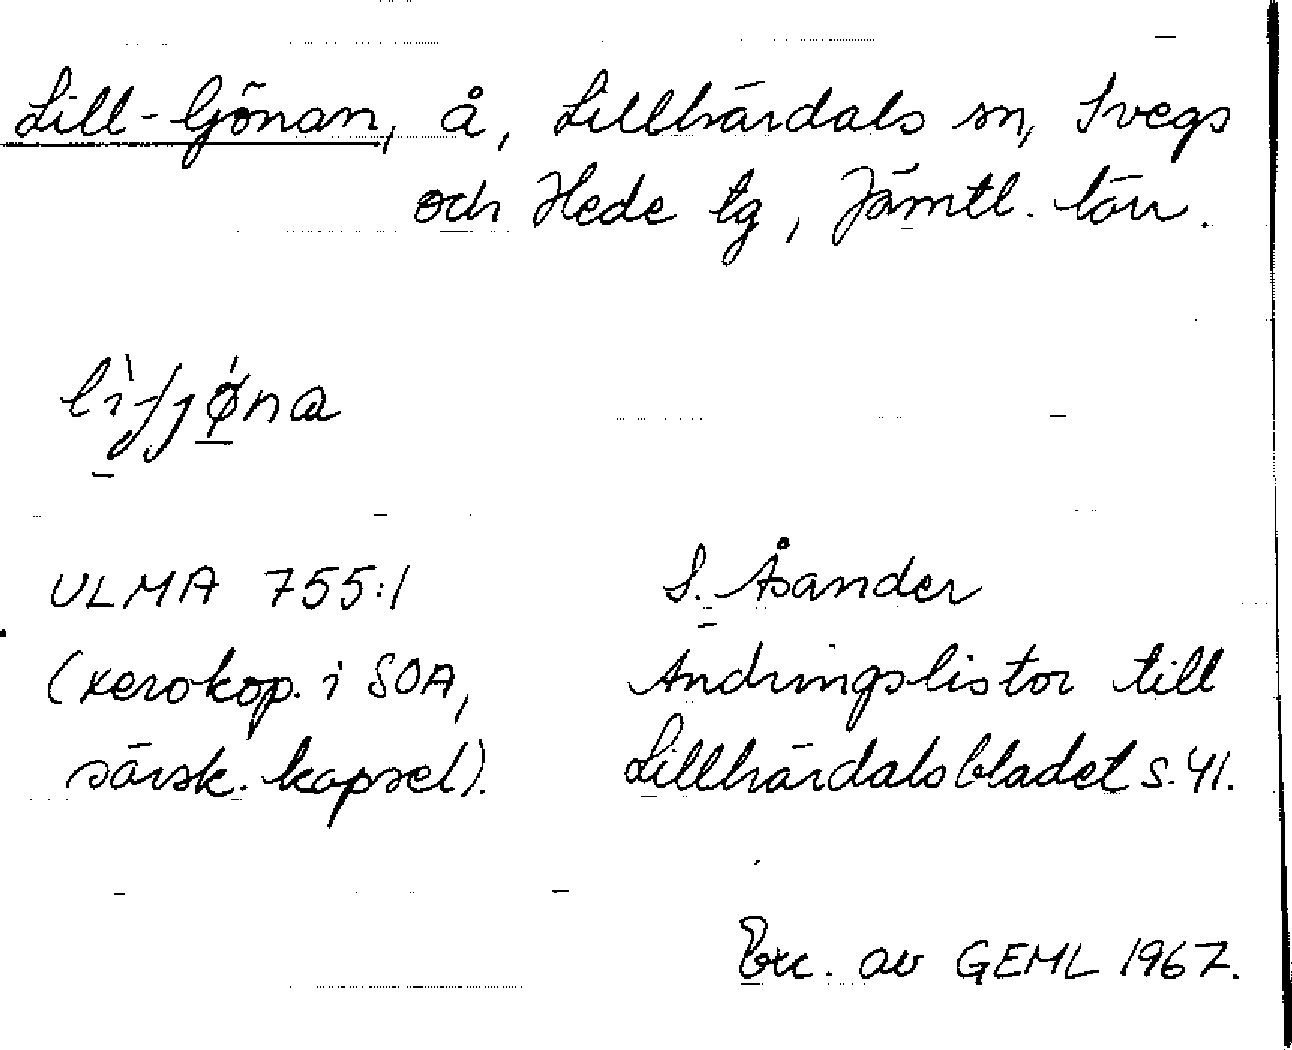 Lill-Gönan, å, Lillhärdals sn, Svegs
och Hede tg, Jämtl. län.
ULMA 755:1
(xerokop. i SOA,
särsk. kapsel).
S. Åsander
Ändringslistor till
Lillhärdalsbladet s. 41.
Exc. av GEML 1967.